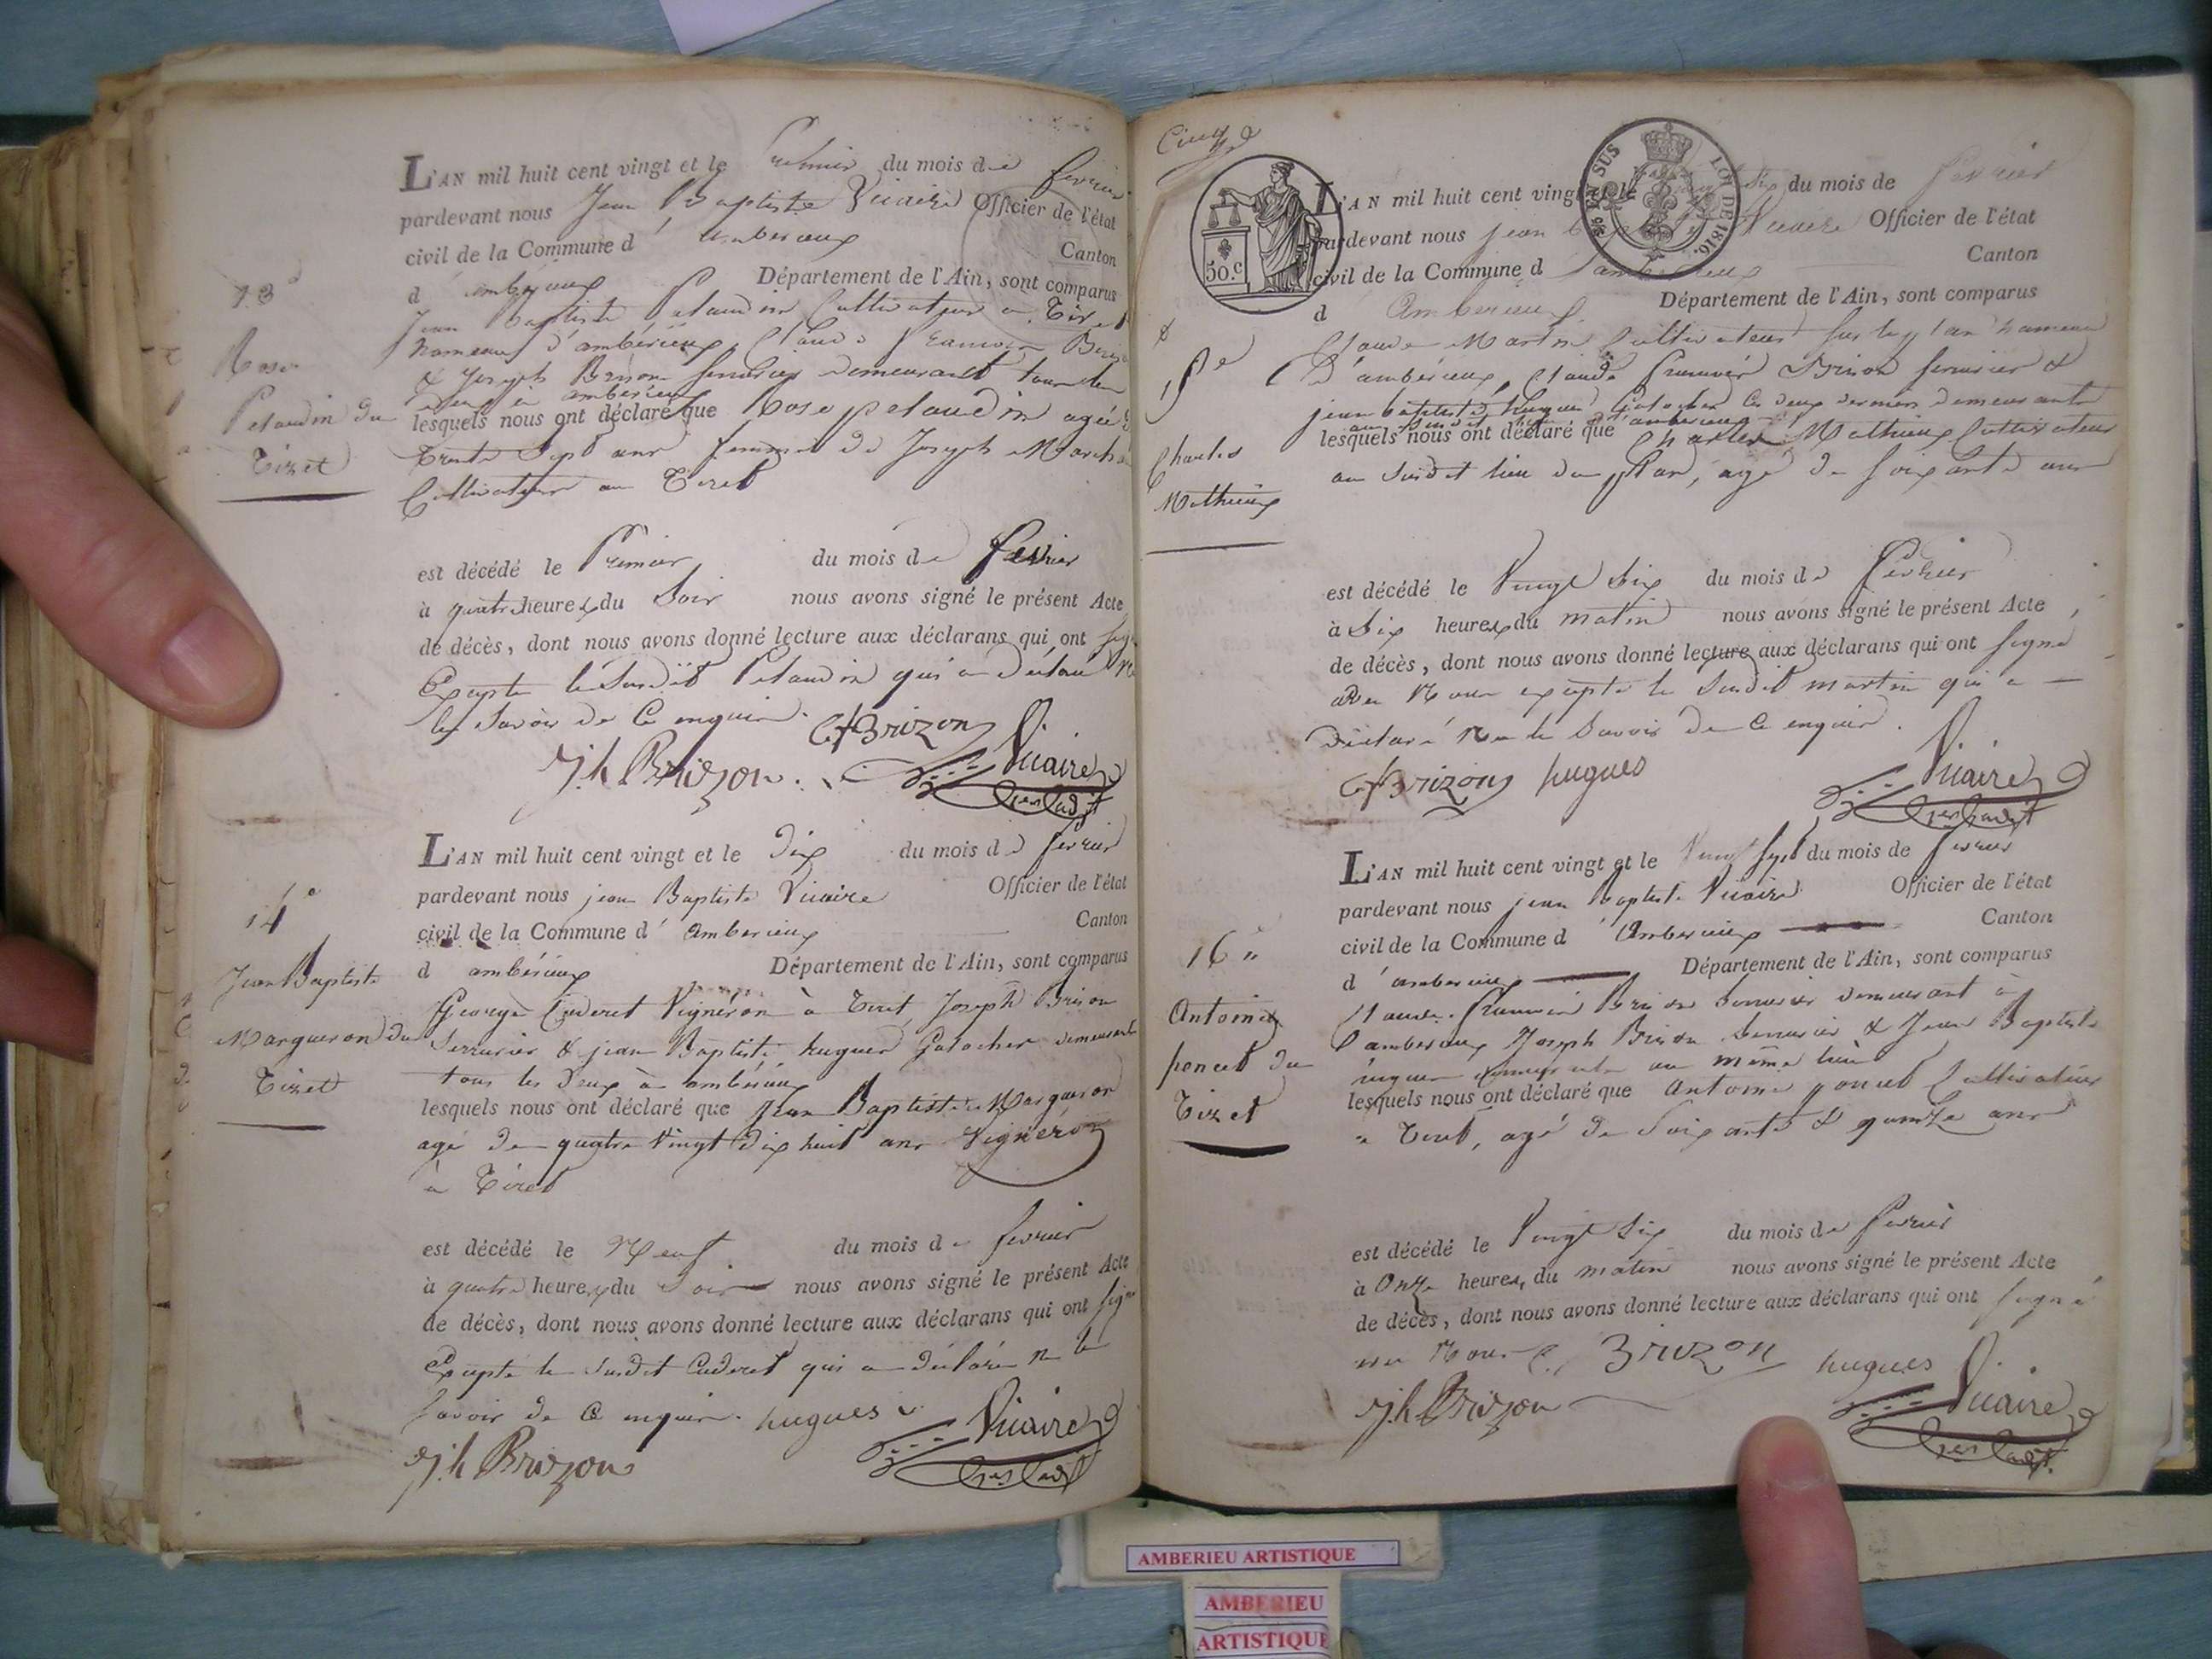 13e
Rose
Petaudin du
Tiret
L'AN mil huit cent vingt et le Premier du mois de fevrier
pardevant nous Jean Baptiste Vicaire Officier de l'état
civil de la Commune d' amberieux
Canton
d' ambérieux Département de l'Ain, sont comparus
Jean Baptiste Petaudin Cultivateur a Tiret
hameau d'ambérieux, Claude Francois
& Joseph Brison serrurier demeurant tous les
deux a ambérieux
lesquels nous ont déclaré que Rose petaudin agée de
Trente Sept ans femme de Joseph
Cultivateur au Tiret
est décédé le Premier du mois de fevrier
à quatre heures du Soir nous avons signé le présent Acte
de décès, dont nous avons donné lecture aux déclarans qui ont
Excepté le Susdit Petaudin qui a déclaré Ne
le Savoir de Ce enquis.
Cf Brizon
J.h Brizon. Vicaire
14e
Jean Baptiste
Margueron du
Tiret
L'AN mil huit cent vingt et le dix du mois de fevrier
pardevant nous jean Baptiste Vicaire Officier de l'état
civil de la Commune d' amberieux
Canton
d ambérieux Département de l'Ain, sont comparus
George Cuderet Vignéron à Tiret, Joseph Brison
Serrurier & jean Baptiste hugues Galocher demeurants
tous les deux à ambérieux
lesquels nous ont déclaré que Jean Baptiste Margueron
agé de quatre Vingt dix huit ans Vignéron
à Tiret
est décédé le Neuf du mois de fevrier
à quatre heures du Soir nous avons signé le présent Acte
de décès, dont nous avons donné lecture aux déclarans qui ont signé
Excepté le Susdit Cuderet qui a déclaré ne le
Savoir de Ce enquis. hugues Vicaire
J.h Brizon
Cinq
50.c
EN SUS
LOI DE 1816.
15e
Charles
Mathieux
L'AN mil huit cent vingt et le vingt six du mois de fevrier
pardevant nous jean Vicaire Officier de l'état
civil de la Commune d' amberieux
Canton
d Amberieux Département de l'Ain, sont comparus
Claude Martin Cultivateur hameau
D'ambérieux, Claude Francois Brison serrurier &
jean baptiste hugues Galocher les deux derniers demeurants
lesquels nous ont déclaré que Charles Mathieux Cultivateur
au Susdit lieu du plan, agé de soixante ans
est décédé le Vingt Six du mois de fevrier
à Six heures du matin nous avons signé le présent Acte
de décès, dont nous avons donné lecture aux déclarans qui ont signé
avec Nous excepté le Susdit martin qui a
déclaré Ne le Savoir de Ce enquis.
Cf Brizon hugues Vicaire
16e
Antoine
poncet du
Tiret
L'AN mil huit cent vingt et le Vingt Sept du mois de fevrier
pardevant nous jean baptiste Vicaire Officier de l'état
civil de la Commune d' Amberieux
Canton
d' amberieux Département de l'Ain, sont comparus
Claude francois Brison Serrurier demeurant à
amberieux Joseph Brison Serrurier & Jean Baptiste
hugues demeurants au même lieu
lesquels nous ont déclaré que Antoine poncet Cultivateur
a Tiret, agé de Soixante & quinze ans
est décédé le Vingt Six du mois de fevrier
à Onze heures du matin nous avons signé le présent Acte
de décès, dont nous avons donné lecture aux déclarans qui ont signé
avec Nous Brizon hugues
J.h Brizon Vicaire
AMBERIEU ARTISTIQUE
AMBERIEU
ARTISTIQUE